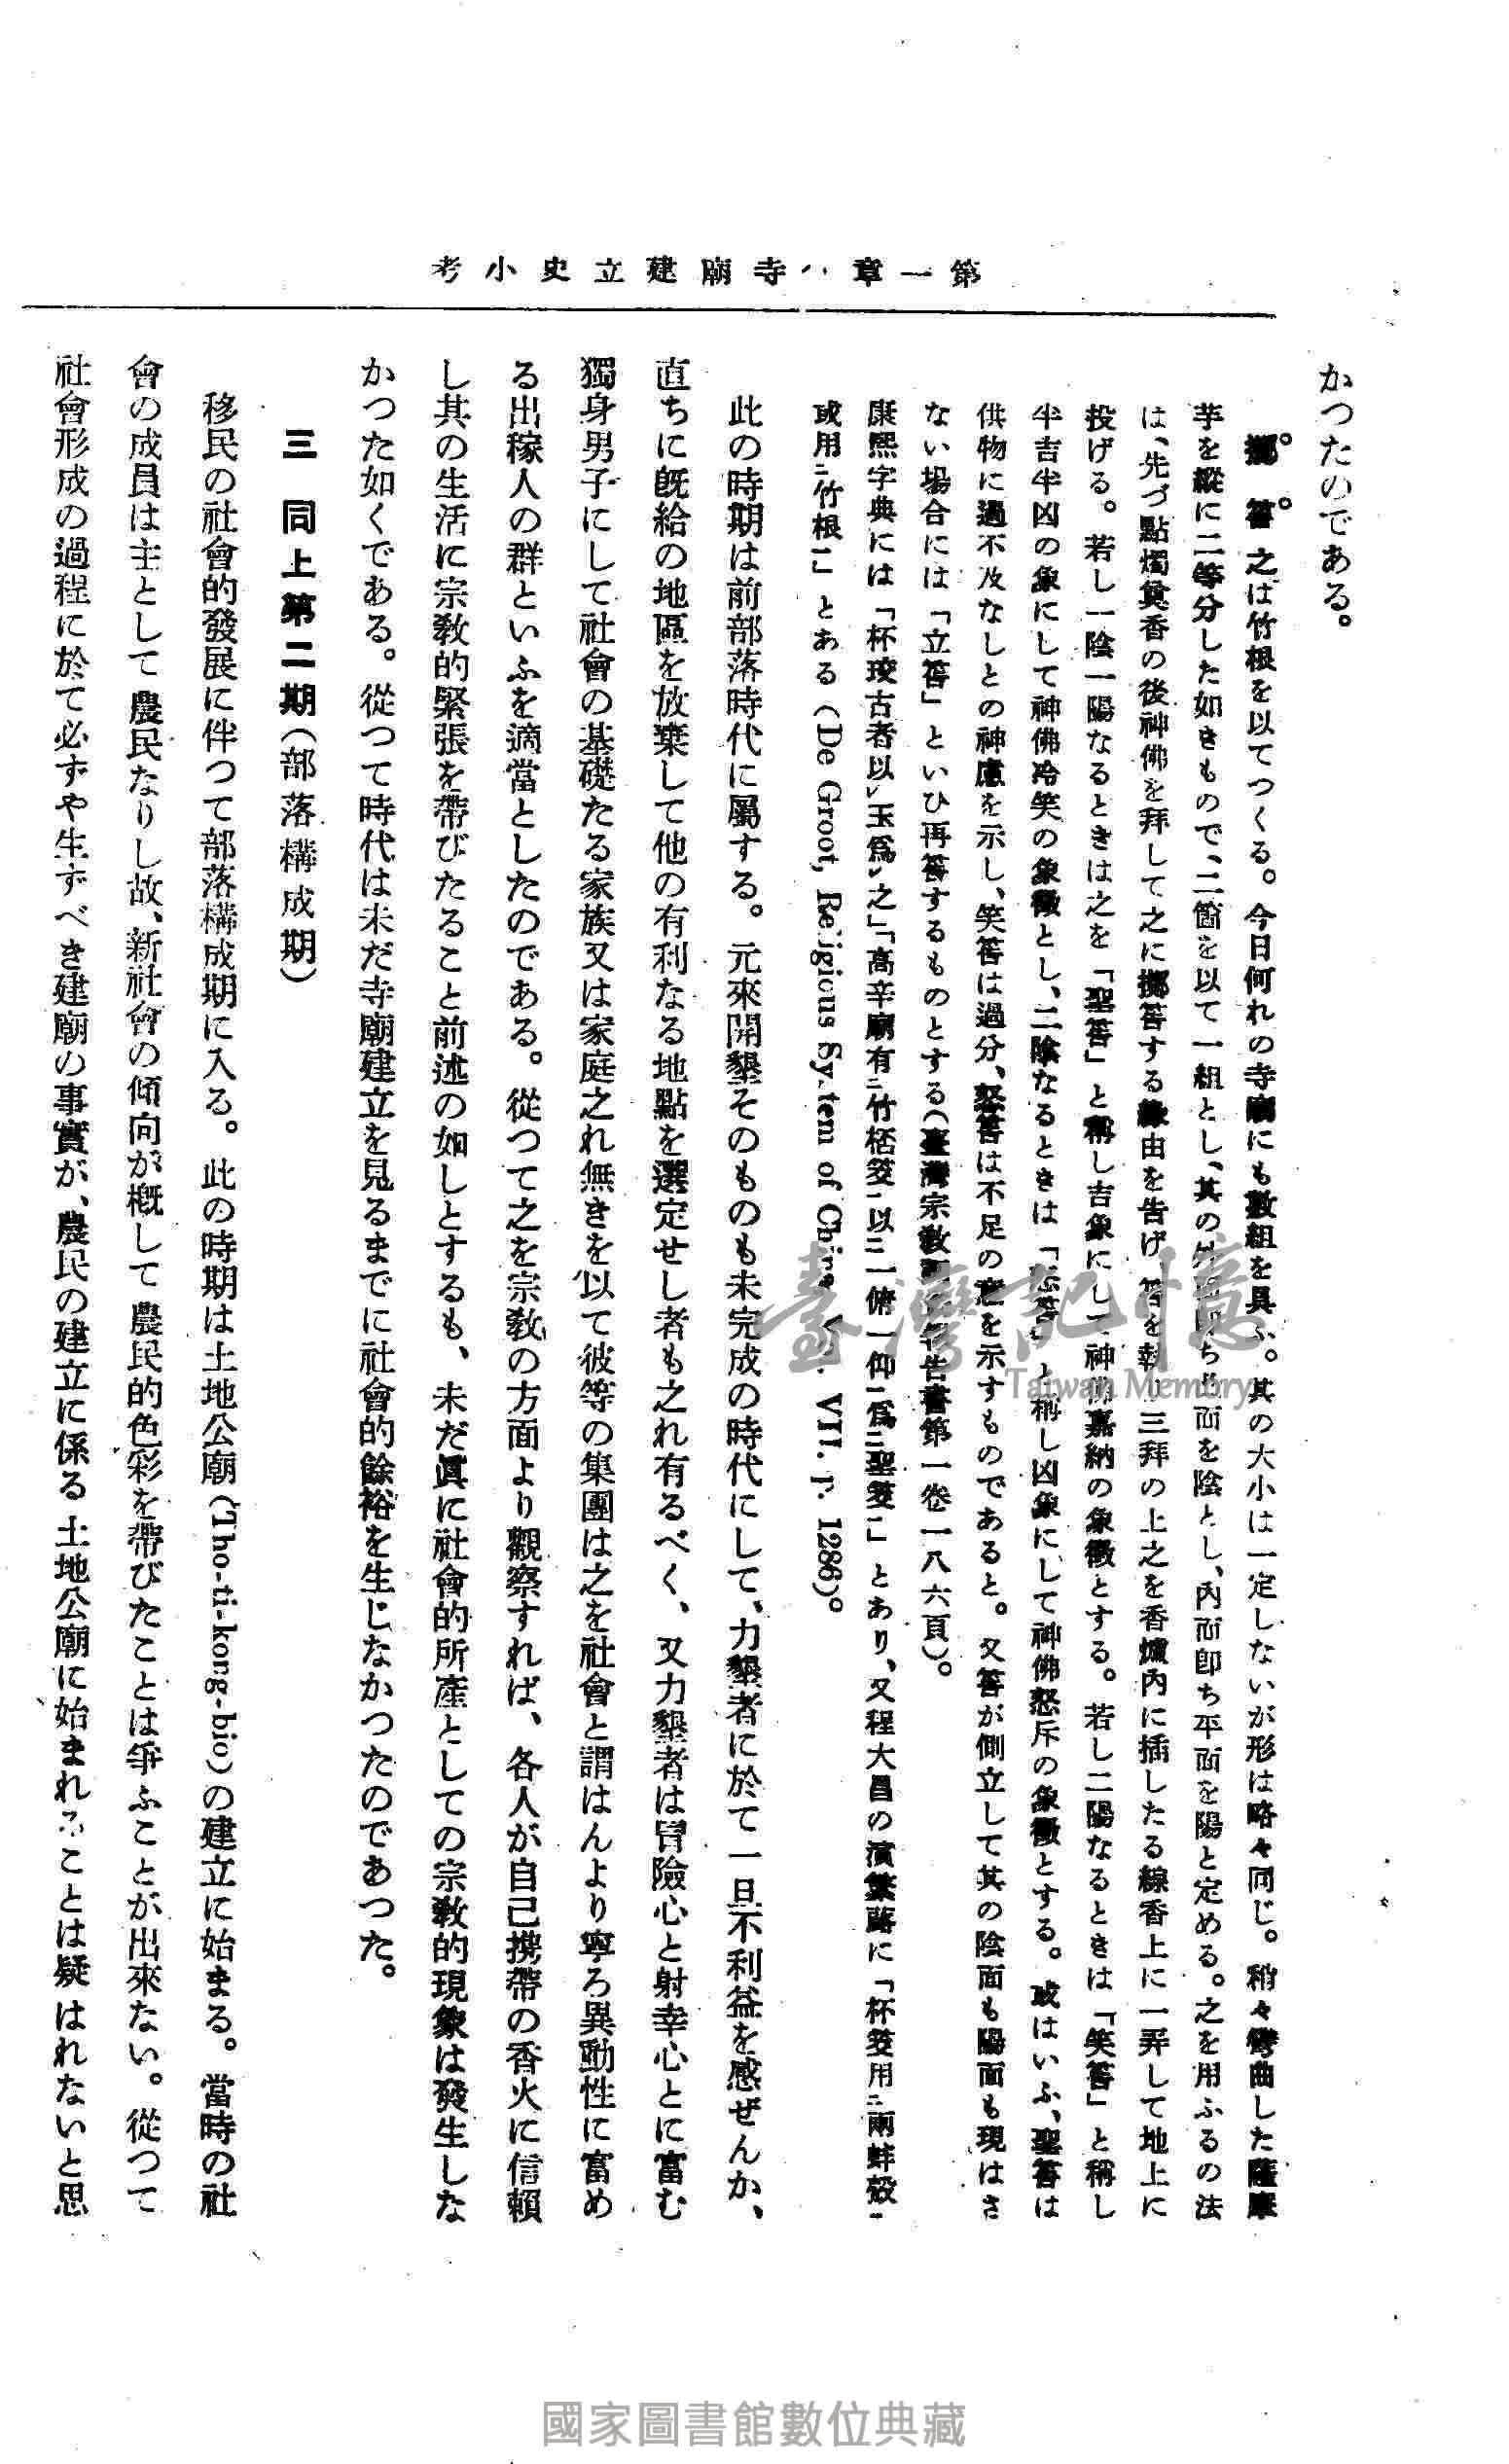 第一章 寺廟建立史小考
かつたのである。
擲筶 之は竹根を以てつくる。今日何れの寺廟にも數組を具ふ。其の大小は一定しないが形は略々同じ。稍々彎曲した薩摩
芋を縱に二等分した如きもので、二箇を以て一組とし、其の外面卽ち凸面を陰とし、內面卽ち平面を陽と定める。之を用ふるの法
は、先づ點燭奠香の後神佛を拜して之に擲筶する緣由を吿げ、筶を執り三拜の上之を香爐內に插したる線香上に一弄して地上に
投げる。若し一陰一陽なるときは之を「聖筶」と稱し吉象にして神佛嘉納の象徵とする。若し二陽なるときは「笑筶」と稱し
半吉半凶の象にして神佛冷笑の象徵とし、二陰なるときは「怒筶」と稱し凶象にして神佛怒斥の象徵とする。或はいふ、聖筶は
供物に過不及なしとの神慮を示し、笑筶は過分、怒筶は不足の意を示すものであると。又筶が側立して其の陰面も陽面も現はさ
ない場合には「立筶」といひ再筶するものとする（臺灣宗敎調查報告書第一卷一八六頁）。
康熙字典には「杯珓古者以㆑玉爲㆑之」「高辛廟有㆓竹桮筊㆒以㆓一俯一仰㆒爲㆓聖筊㆒」とあり、又程大昌の演繁露に「杯筊用㆓兩蚌殼㆒
或用㆓竹根㆒」とある（De Groot, Religious System of China, Vol. VII. P. 1286）。
此の時期は前部落時代に屬する。元來開墾そのものも未完成の時代にして、力墾者に於て一旦不利益を感ぜんか、
直ちに旣給の地區を放棄して他の有利なる地點を選定せし者も之れ有るべく、又力墾者は冒險心と射幸心とに富む
獨身男子にして社會の基礎たる家族又は家庭之れ無きを以て彼等の集團は之を社會と謂はんより寧ろ異動性に富め
る出稼人の群といふを適當としたのである。從つて之を宗敎の方面より觀察すれば、各人が自己携帶の香火に信賴
し其の生活に宗敎的緊張を帶びたること前述の如しとするも、未だ眞に社會的所產としての宗敎的現象は發生しな
かつた如くである。從つて時代は未だ寺廟建立を見るまでに社會的餘裕を生じなかつたのであつた。
三 同上第二期（部落構成期）
移民の社會的發展に伴つて部落構成期に入る。此の時期は土地公廟（Tho-ti-kong-bio）の建立に始まる。當時の社
會の成員は主として農民なりし故、新社會の傾向が槪して農民的色彩を帶びたことは爭ふことが出來ない。從つて
社會形成の過程に於て必ずや生ずべき建廟の事實が、農民の建立に係る土地公廟に始まれることは疑はれないと思
臺灣記憶
Taiwan Memory
國家圖書館數位典藏